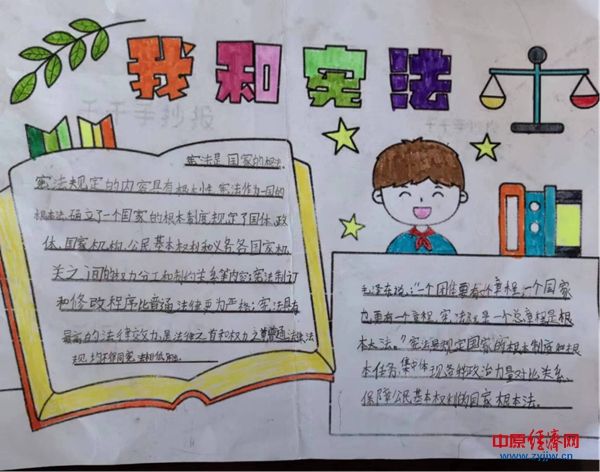 我和宪法
千千手抄报
宪法是国家的根法
宪法规定的内容具有根本性,宪法作为一国的
根本法,确立了一个国家的根本制度,规定了国体、政
体、国家机构、公民基本权利和义务各国家机
关之间的权力分工和制约关系等内容;宪法制订
和修改程序比普通法律更为严格;宪法具有
最高的法律效力,是法律之
现
毛泽东说:"一个团体要有一个章程,一个国家
也要有一个章程,宪法就是一个总章程,是根
本大法。"宪法是规定国家的根本制度和根
本任务,集中体现各种政治力量对比关系、
保障公民基本权利的国家根本法。
中原经济网
www.zyjjw.cn